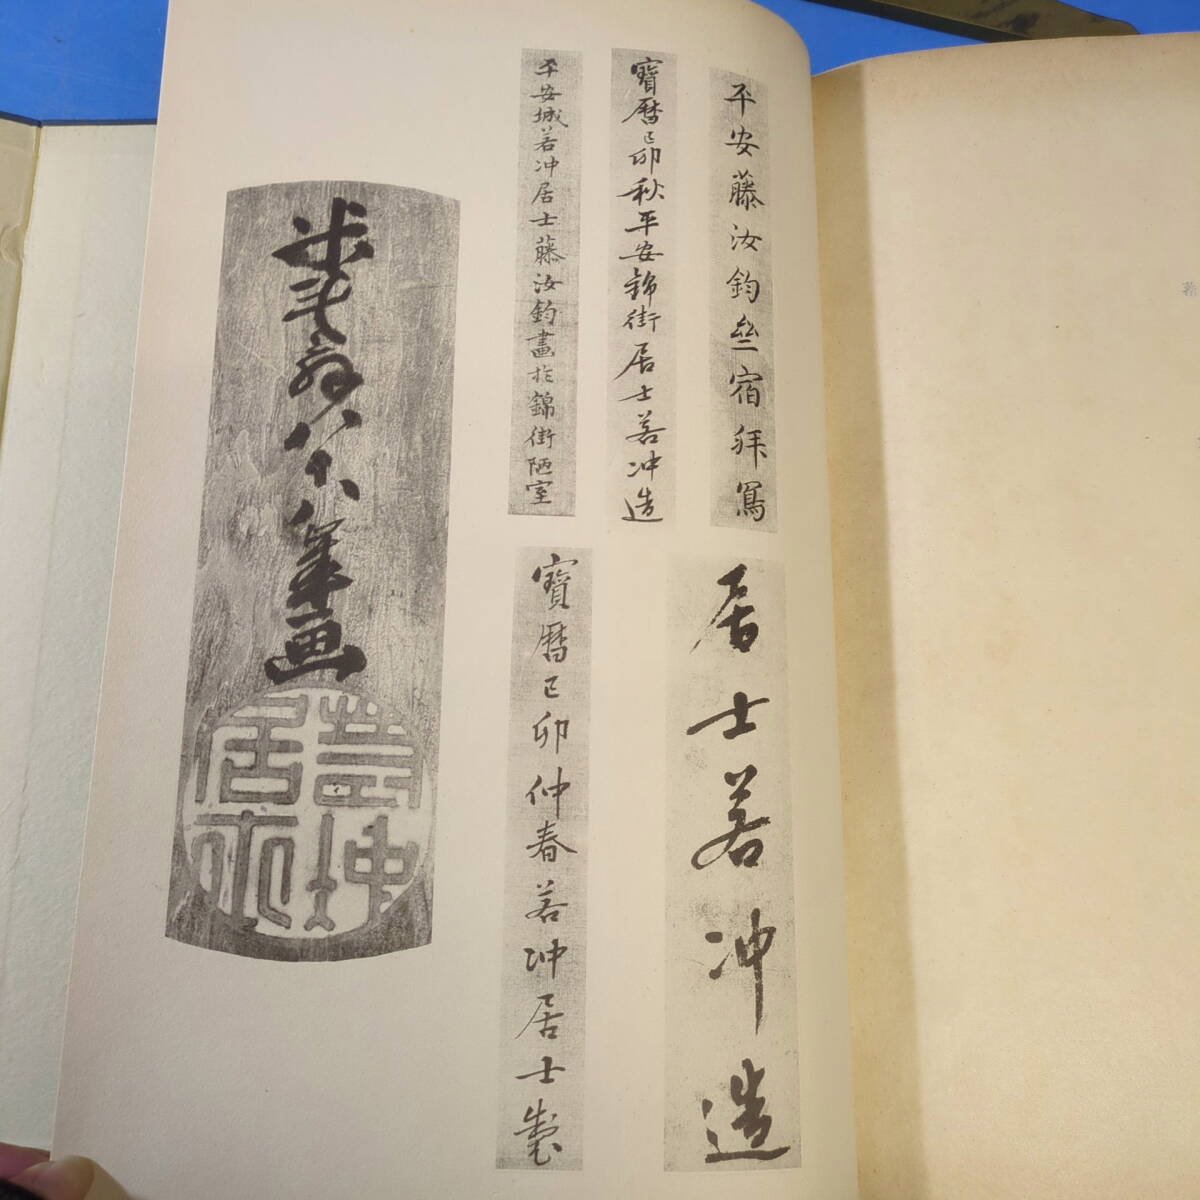 平安藤汝鈞齋宿拜寫
寶暦己卯秋平安錦街居士若冲造
平安城若冲居士藤汝鈞畫於錦街陋室
居士若冲造
寶暦己卯仲春若冲居士製
米斗翁八十八歳画
若冲居士